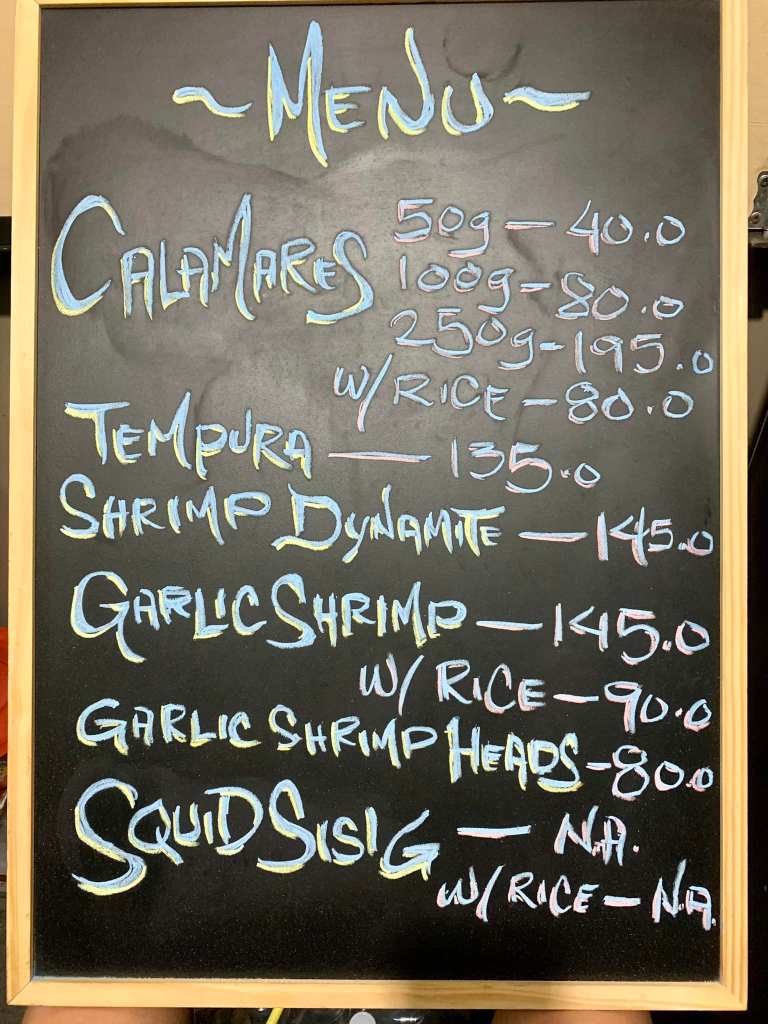 ~MENU~
CALAMARES 50g - 40.0
100g - 80.0
250g - 195.0
W/ RICE - 80.0
TEMPURA — 135.0
SHRIMP DYNAMITE — 145.0
GARLIC SHRIMP — 145.0
W/ RICE - 90.0
GARLIC SHRIMP HEADS - 80.0
SQUID SISIG — N.A.
W/ RICE - N.A.